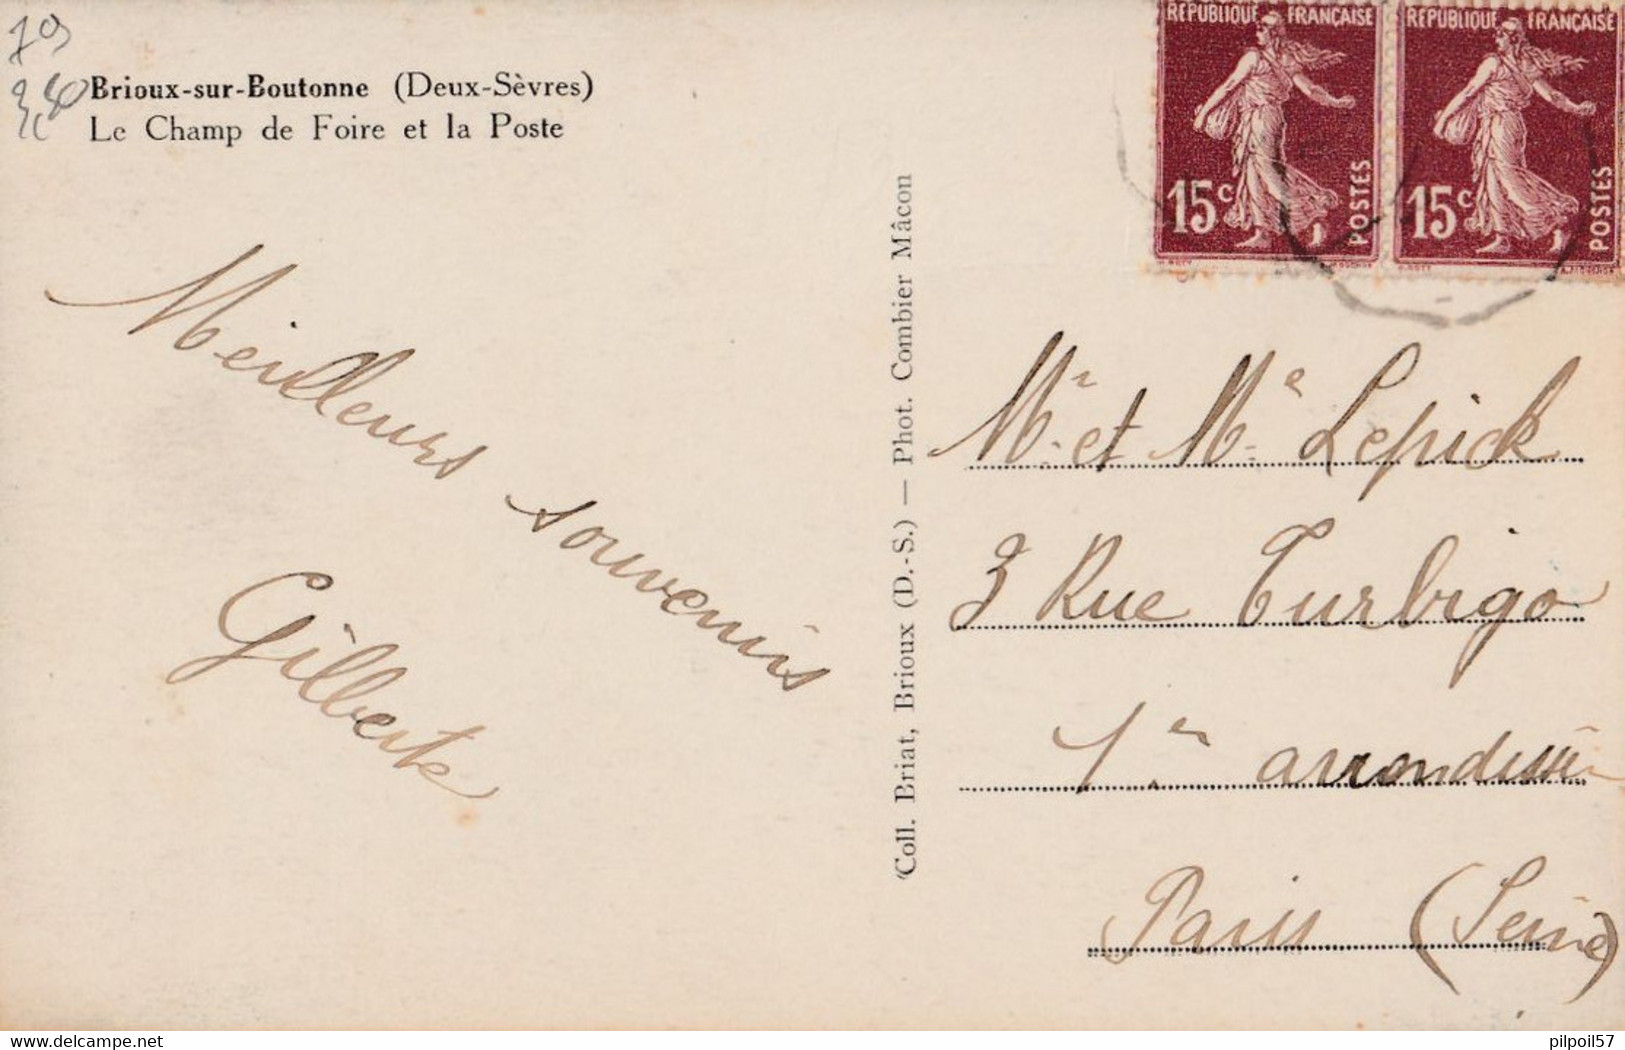 79
Brioux-sur-Boutonne (Deux-Sèvres)
Le Champ de Foire et la Poste
Meilleurs souvenirs
Gilberte
Coll. Briat, Brioux (D.-S.) — Phot. Combier Mâcon
REPUBLIQUE FRANÇAISE
15c
POSTES
REPUBLIQUE FRANÇAISE
15c
POSTES
Mr et Me Lepick
3 Rue Turbigo
1er arrondissi
Paris (Seine)
delcampe.net
pilpoil57